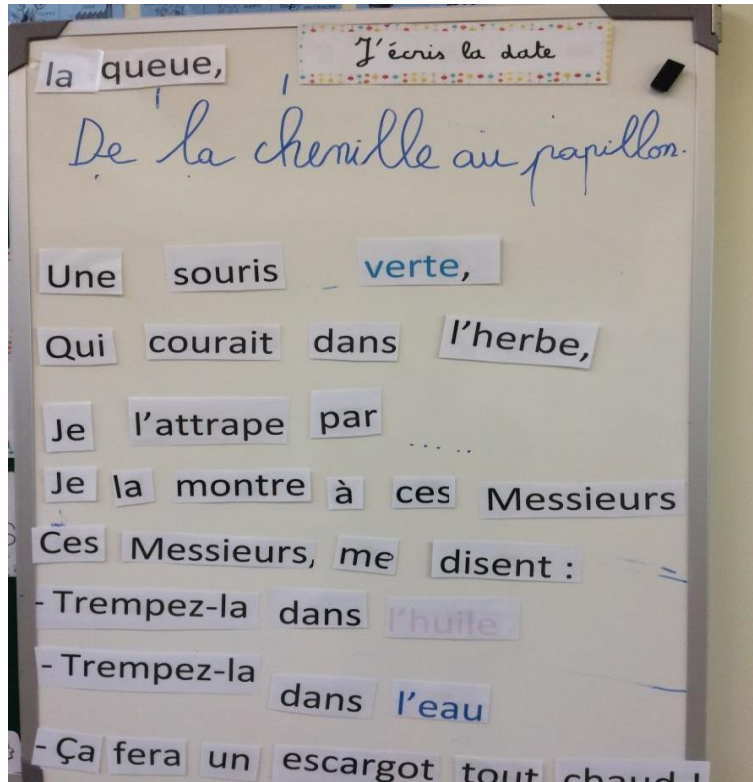 la queue,
J'écris la date
De la chenille au papillon.
Une souris verte,
Qui courait dans l'herbe,
Je l'attrape par .....
Je la montre à ces Messieurs
Ces Messieurs, me disent :
- Trempez-la dans l'huile
- Trempez-la dans l'eau
- Ça fera un escargot tout chaud !